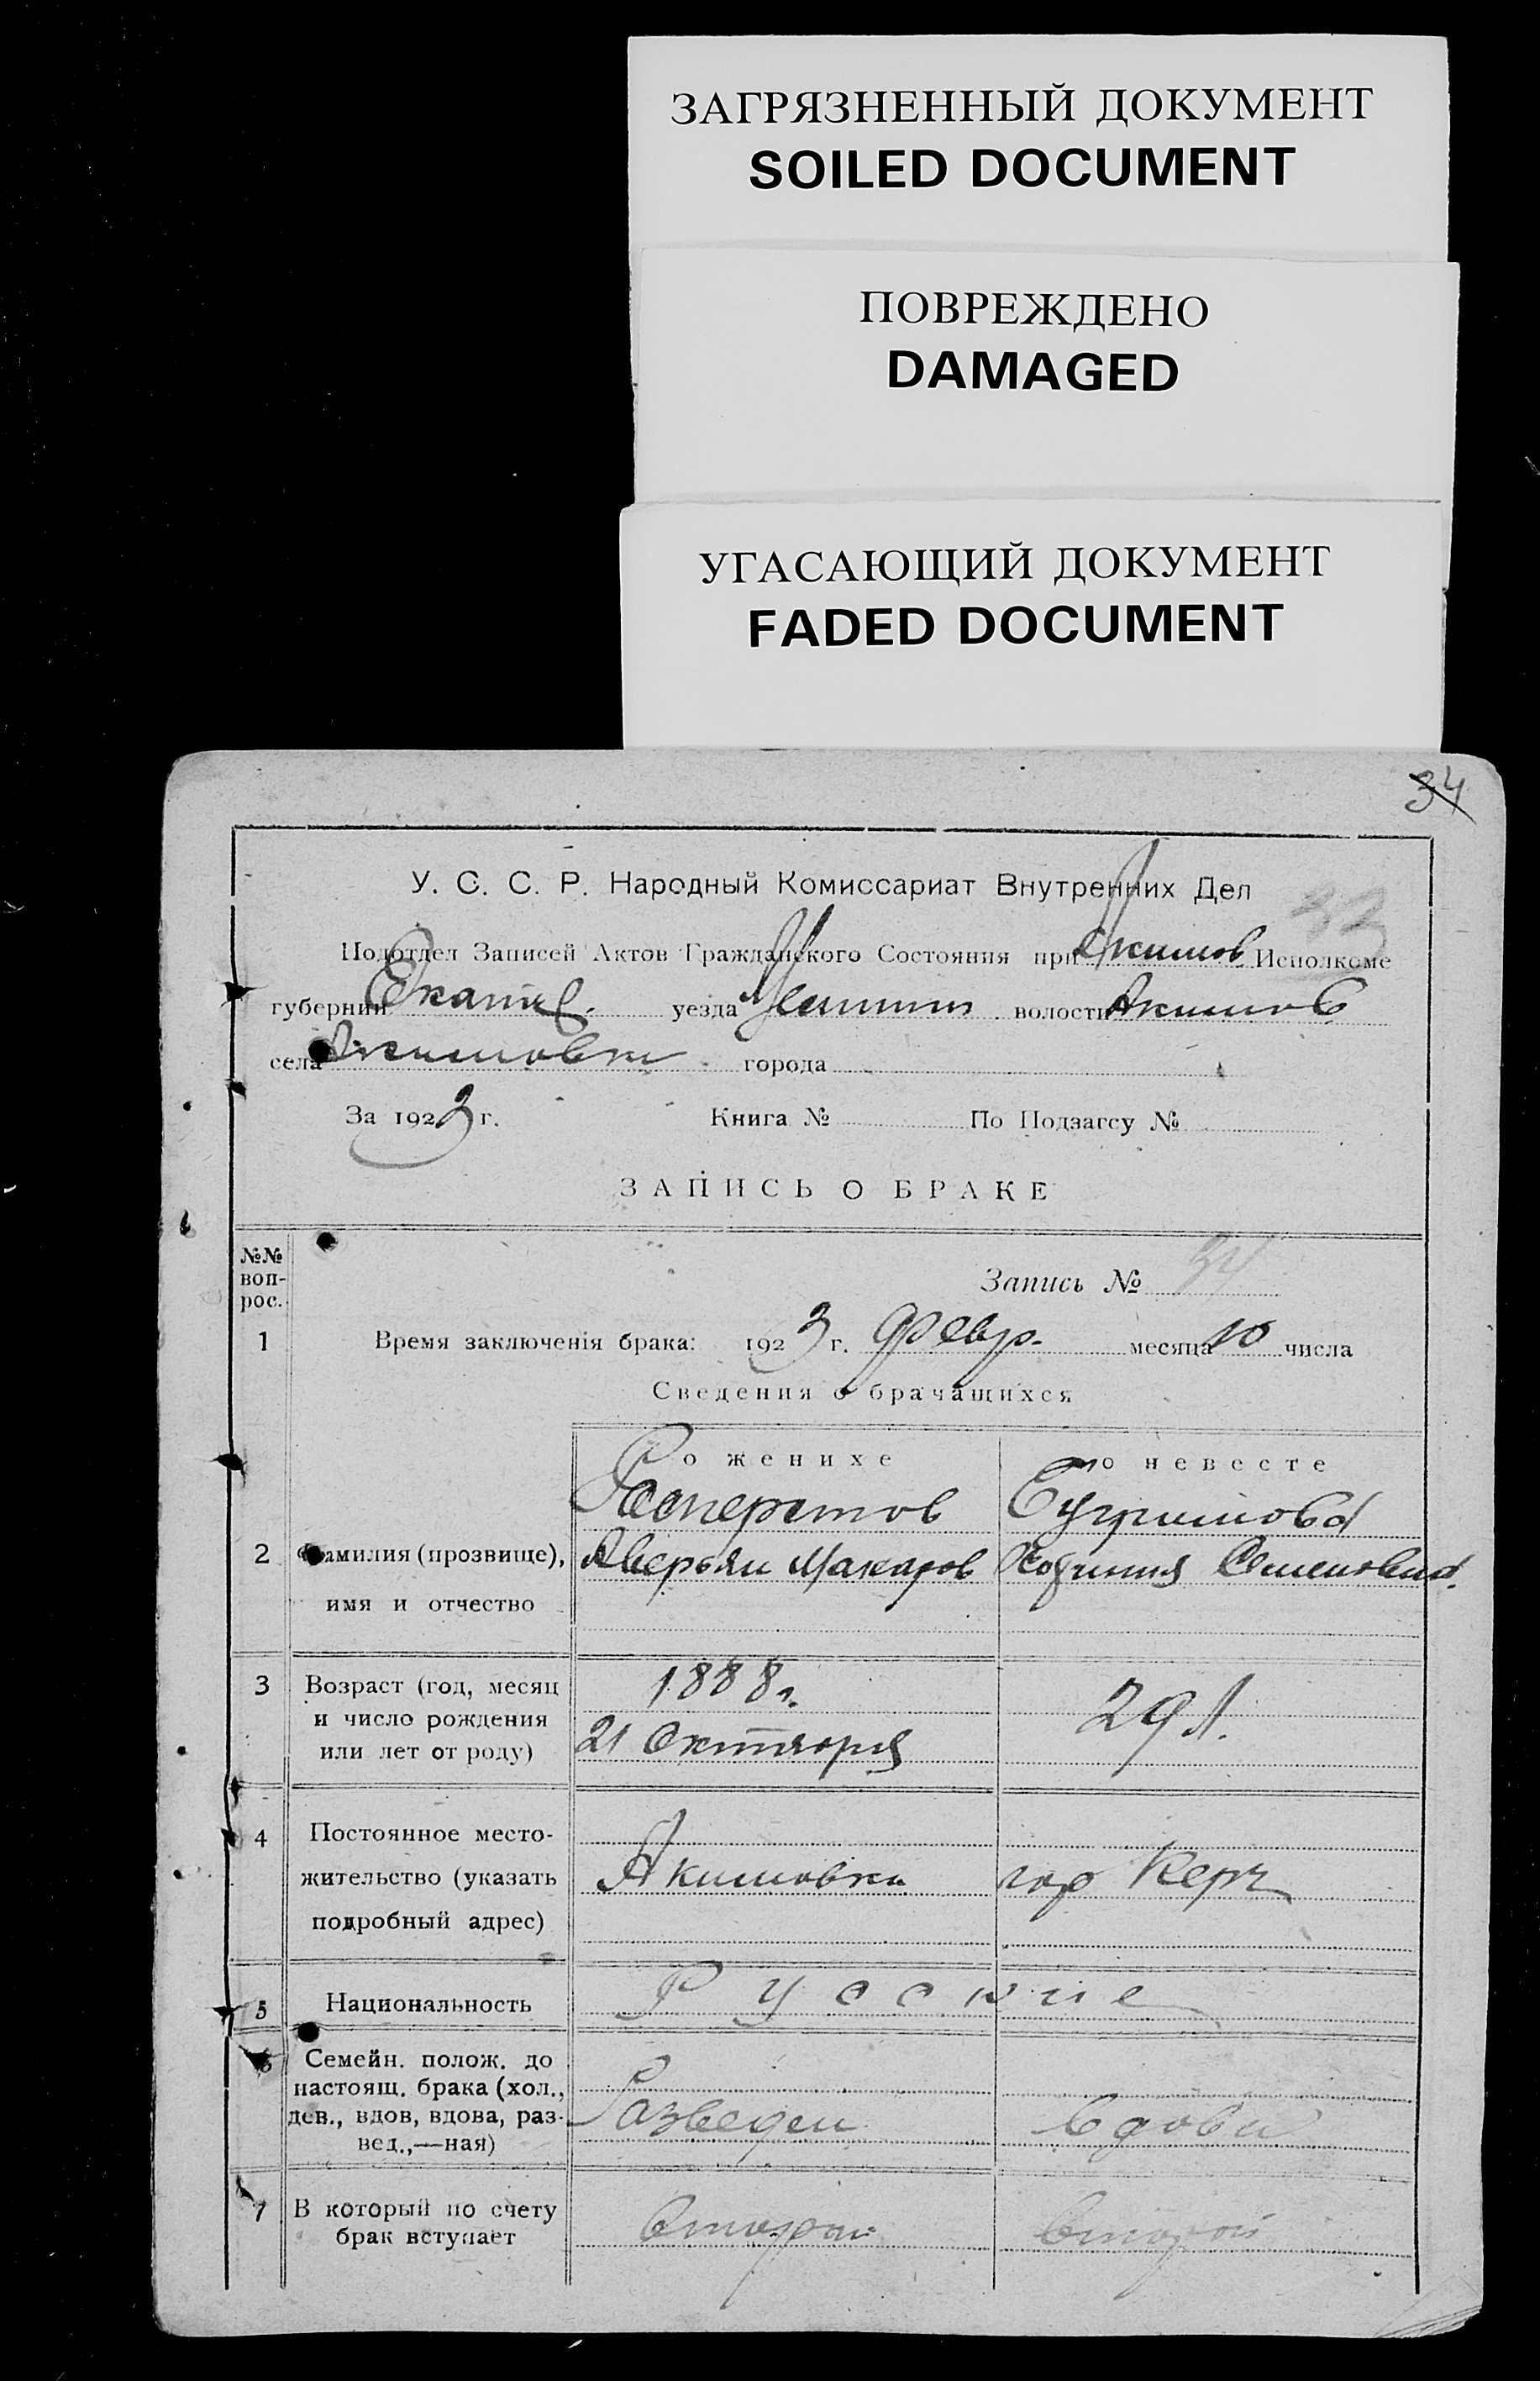 ЗАГРЯЗНЕННЫЙ ДОКУМЕНТ
SOILED DOCUMENT
ПОВРЕЖДЕНО
DAMAGED
УГАСАЮЩИЙ ДОКУМЕНТ
FADED DOCUMENT
34
У. С. С. Р. Народный Комиссариат Внутренних Дел
Подотдел Записей Актов Гражданского Состояния при Акимов Исполкоме
губернии Екатер. уезда волости Акимов
села Акимовки города
За 1923 г. Книга № По Подзагсу №
ЗАПИСЬ О БРАКЕ
№№ воп-
рос.
Запись № 34
1 Время заключенія брака: 1923 г. Февр. месяца 10 числа
Сведения о брачащихся
о женихе о невесте
2 Фамилия (прозвище),
имя и отчество
Аверьян Макаров
3 Возраст (год, месяц
и число рождения
или лет от роду)
1888 г.
21 Октября
29 л.
4 Постоянное место-
жительство (указать
подробный адрес)
Акимовка гор Керч
5 Национальность Русские
6 Семейн. полож. до
настоящ. брака (хол.,
дев., вдов, вдова, раз-
вед.,—ная)
Разведен вдова
7 В который по счету
брак вступает
второй второй